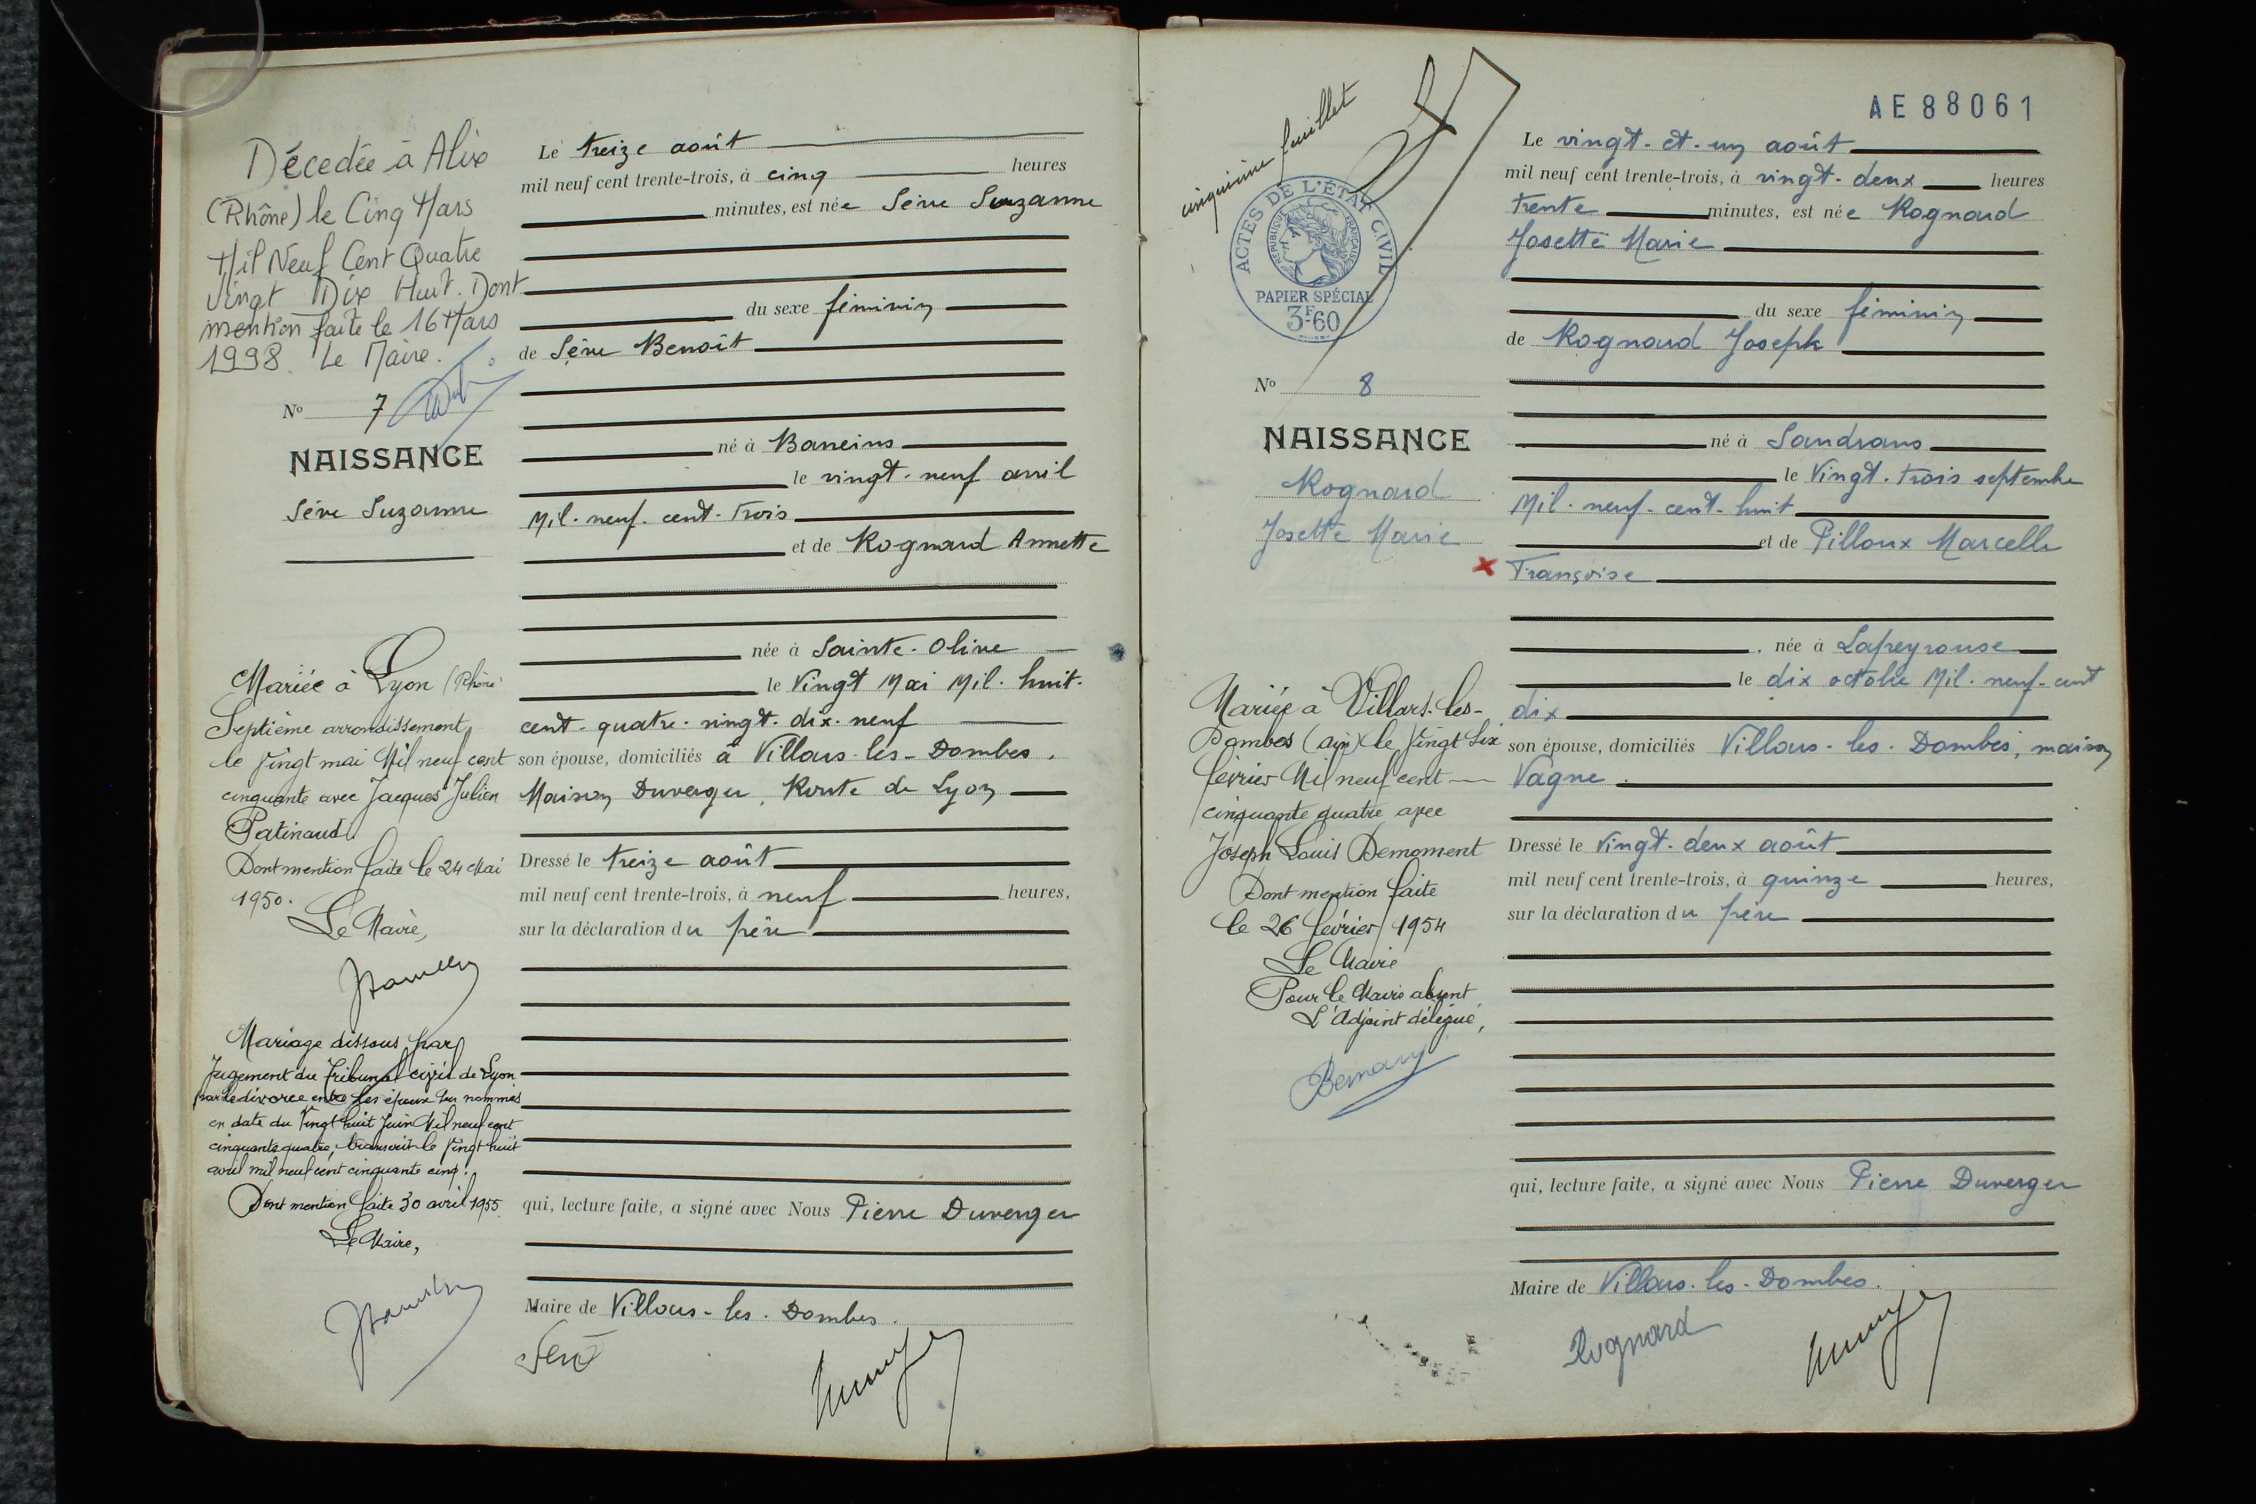 Décedée à Alix
(Rhône) le Cinq Mars
Mil Neuf Cent Quatre
Vingt Dix Huit. Dont
mention faite le 16 Mars
1998. Le Maire.
No 7
NAISSANCE
Séve Suzanne
Mariée à Lyon (Rhône)
Septième arrondissement
le Vingt mai Mil neuf cent
cinquante avec Jacques Julien
Patinaud.
Dont mention faite le 24 Mai
1950.
Le Maire,
Mariage dissous par
Jugement du Tribunal civil de Lyon
par le divorce entre les époux sus nommés
en date du Vingt huit Juin Mil neuf cent
cinquante quatre, transcrit le Vingt huit
avril mil neuf cent cinquante cinq.
Dont mention faite 30 avril 1955
Le Maire,
Le treize août
mil neuf cent trente-trois, à cinq heures
minutes, est née Séve Suzanne
du sexe féminin
de Séve Benoît
né à Baneins
le vingt-neuf avril
Mil-neuf-cent-trois
et de Rognard Annette
née à Sainte-Olive
le Vingt Mai Mil-huit-
cent-quatre-vingt-dix-neuf
son épouse, domiciliés à Villars-les-Dombes,
Maison Duverger, Route de Lyon
Dressé le treize août
mil neuf cent trente-trois, à neuf heures,
sur la déclaration du père
qui, lecture faite, a signé avec Nous Pierre Duverger
Maire de Villars-les-Dombes.
Seve
cinquième feuillet
ACTES DE L'ÉTAT CIVIL
RÉPUBLIQUE FRANÇAISE
PAPIER SPÉCIAL
3F60
No 8
NAISSANCE
Rognard
Josette Marie
Mariée à Villars-les-
Dombes (Ain) le Vingt Six
février Mil neuf cent
cinquante quatre avec
Joseph Louis Demoment
Dont mention faite
le 26 février 1954
Le Maire
Pour le Maire absent
L'Adjoint délégué,
AE88061
Le vingt-et-un août
mil neuf cent trente-trois, à vingt-deux heures
trente minutes, est née Rognard
Josette Marie
du sexe féminin
de Rognard Joseph
né à Sandrans
le Vingt-trois septembre
Mil-neuf-cent-huit
et de Pilloux Marcelle
Françoise
née à Lapeyrouse
le dix octobre Mil-neuf-cent
dix
son épouse, domiciliés Villars-les-Dombes, maison
Vagne.
Dressé le Vingt-deux août
mil neuf cent trente-trois, à quinze heures,
sur la déclaration du père
qui, lecture faite, a signé avec Nous Pierre Duverger
Maire de Villars-les-Dombes.
Rognard